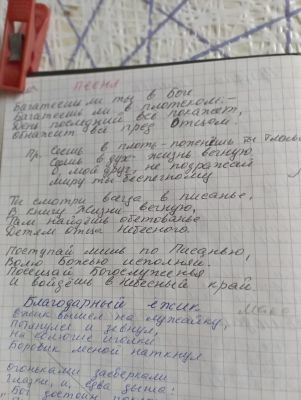 Песня
Богатеешь ли ты в Боге
Богатеешь ли в плотском: -
День последний всё покажет,
Обнажит всё пред Отцем.
Пр. Сеешь в плоть - пожнёшь ты
Сеешь в дух - жизнь вечную,
О, мой друг, не подражай
миру ты беспечному
Ты смотри всегда в писанье,
В книгу Жизни вечную,
Там найдёшь обетованье
Детям Отца Небесного.
Поступай лишь по Писанью,
Волю Божью исполняй.
Посещай Богослуженья
И войдёшь в Небесный край
Благодарный ёжик
Ёжик вышел на лужайку,
Потянулся и зевнул,
На колючие иголки
Боровик лесной наткнул
Огоньками засверкали
Глазки, и, едва дыша:
"Бог достоин